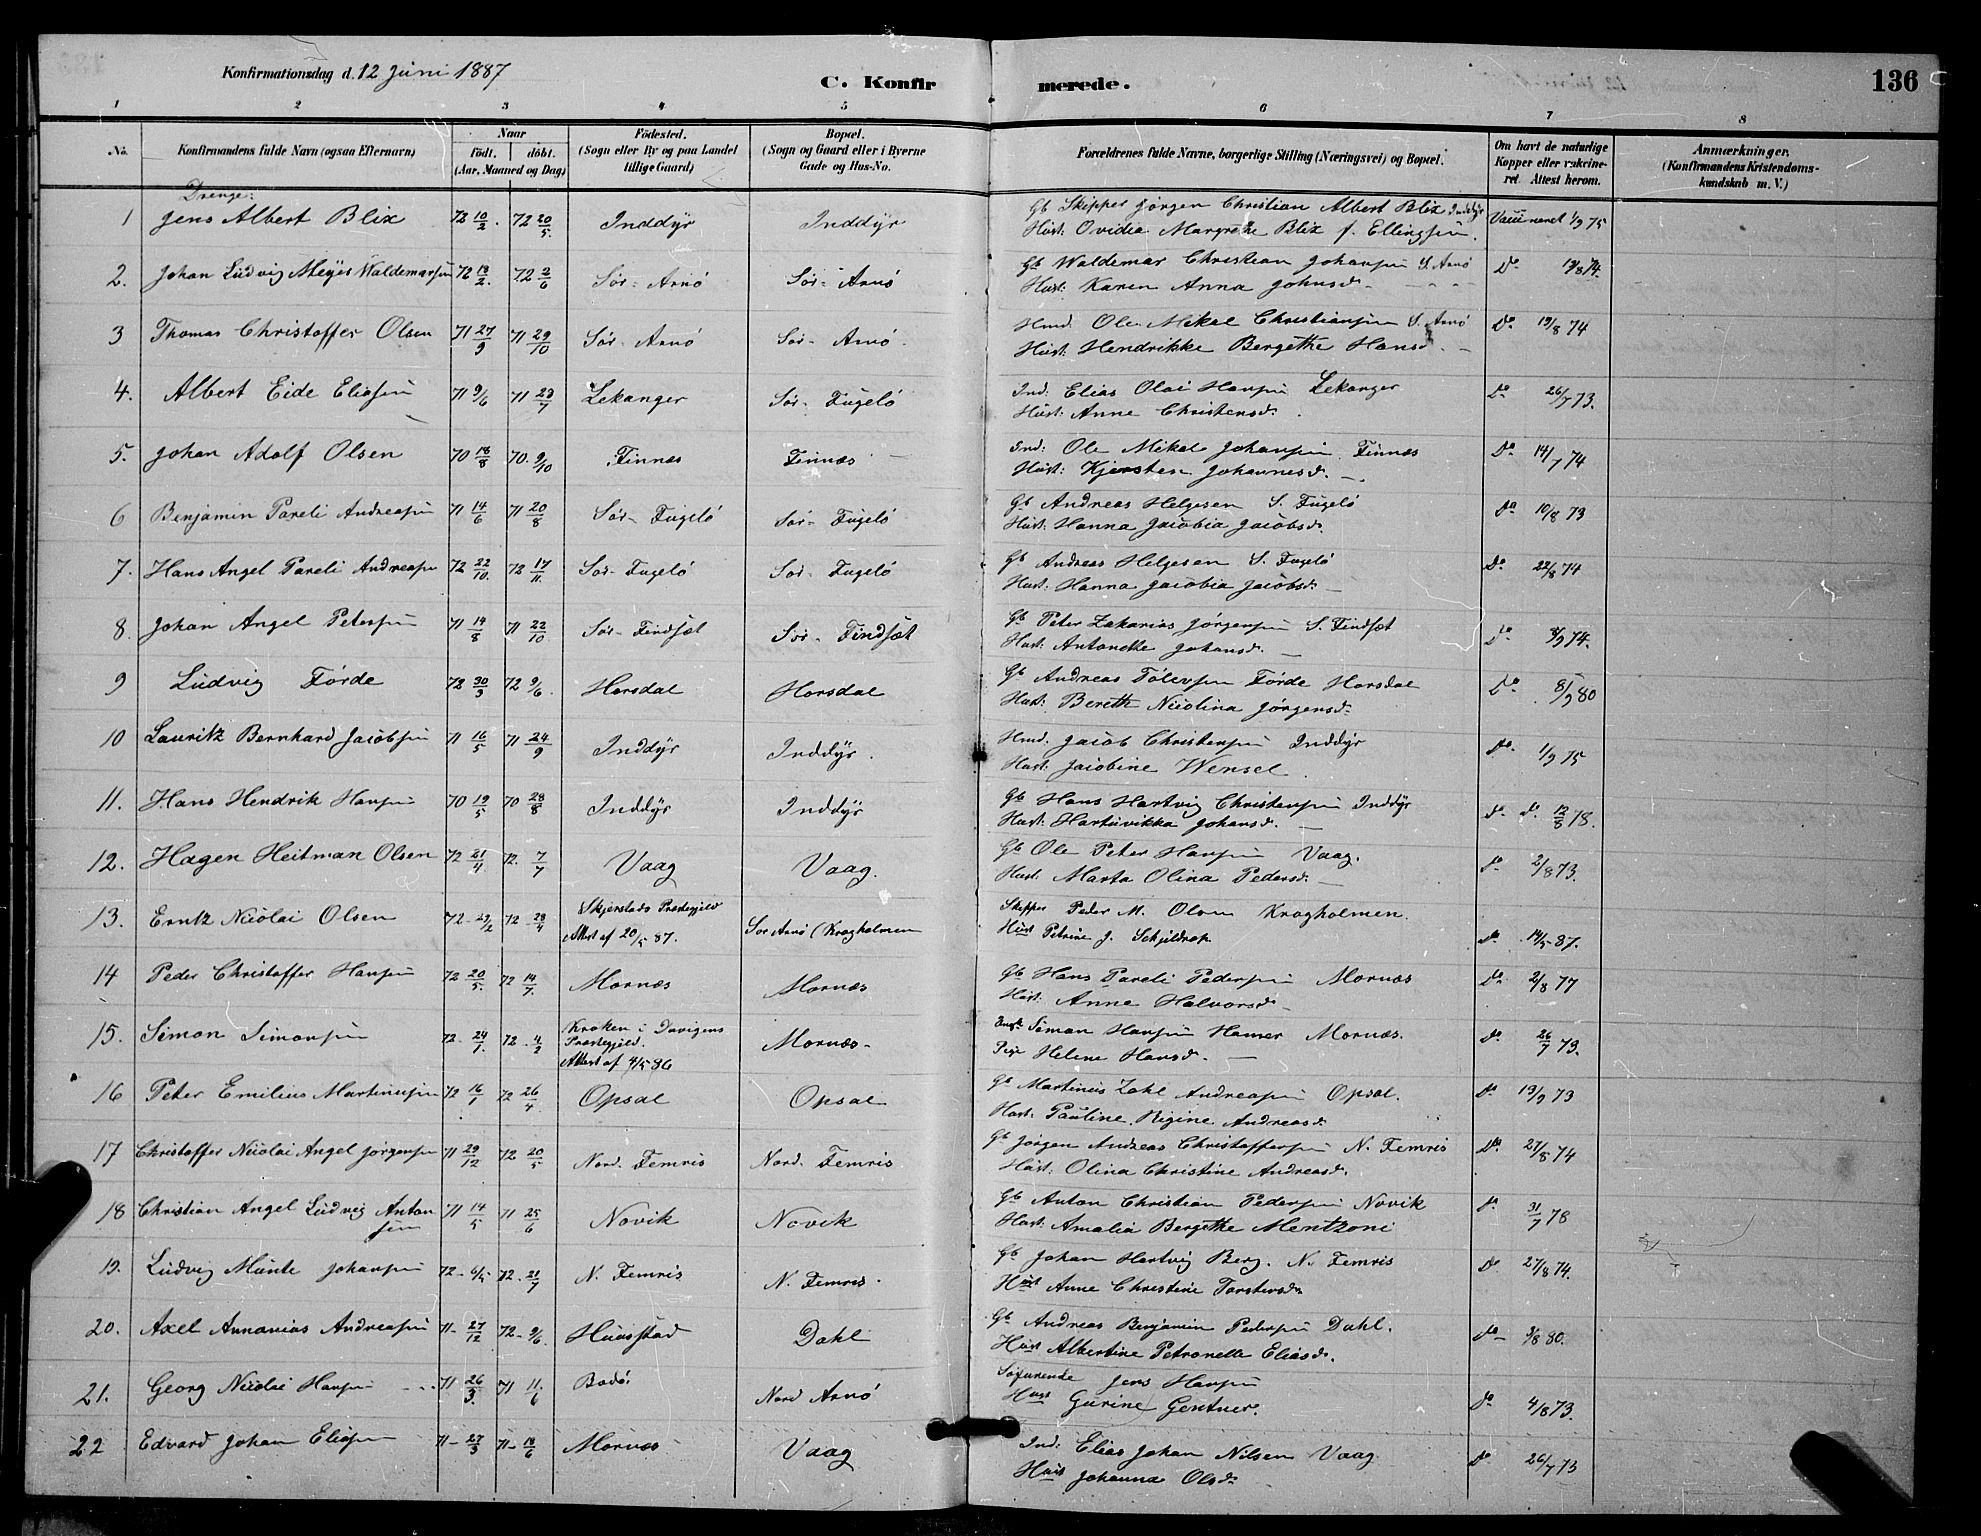 Konfirmationsdag d. 12 Juni 1887
C. Konfirmerede.
136
1 2 3 4 5 6 7 8
No. Konfirmandens fulde Navn (ogsaa Efternavn) Naar födt. döbt. (Aar, Maaned og Dag) Födested. (Sogn eller By og paa Landet tillige Gaard) Bopæl. (Sogn og Gaard eller i Byerne Gade og Hus-No. Forældrenes fulde Navne, borgerlige Stilling (Næringsvei) og Bopæl. Om havt de naturlige Kopper eller vakcineret. Attest herom. Anmærkninger. (Konfirmandens Kristendomskundskab m. V.)
Drenge:
1 Jens Albert Blix 72 10/2 72 20/5 Inddyr Inddyr Gb Skipper Jörgen Christian Albert Blix Inddyr 1/9 75
Hust: Ovidia Margrethe Blix f. Ellingsen
2. Johan Ludvig Meyer Waldemarsen 72 72 2/6 Sör-Arnö Sör-Arnö Gb Waldemar Christian Johansen S. Arnö Do 74.
Hust: Karen Anna Johnsd.
3 Thomas Christoffer Olsen 71 27/9 71 29/10 Sör-Arnö Sör-Arnö Hmd. Ole Mikal Christiansen S. Arnö Do 19/8 74
Hust: Hendrikke Bergethe Hansd.
4. Albert Eide Eliasen 71 9/6 71 23/7 Lekanger Sör-Fugelö Ind: Elias Olai Hansen Lekanger Do 26/7 73.
Hust: Anne Christensd.
5. Johan Adolf Olsen 70 18/8 70. 9/10 Finnæs Finnæs Ind: Ole Mikal Johansen Finnæs Do 14/7 74
Hust: Kjersten Johannesd.
6 Benjamin Pareli Andreasen 71 14/6 71 20/8 Sör-Fugelö Sör-Fugelö Gb Andreas Helgesen S. Fugelö Do 10/8 73
Hust: Hanna Jacobia Jacobsd.
7. Hans Angel Pareli Andreasen 72 22/10. 72 17/11. Sör-Fugelö Sör-Fugelö Gb Andreas Helgesen S. Fugelö Do 22/8 74
Hust: Hanna Jacobia Jacobsd.
8. Johan Angel Petersen 71 14/8 71 22/10 Sör-Findsæt Sör-Findsæt Gb Peter Zakarias Jörgensen S. Findsæt Do 74.
Hust: Antonette Johansd.
9 Ludvig Förde 72 30/3 72 9/6 Horsdal Horsdal Gb Andreas Tölevsen Förde Horsdal Do 8/9 80
Hust: Berethe Nicolina Jörgensd.
10 Lauritz Bernhard Jacobsen 71 16/5 71 24/9 Inddyr Inddyr. Hmd. Jacob Christensen Inddyr do 1/9 75
Hust: Jacobine Wensel.
11. Hans Hendrik Hansen 70 19/5 70 28/8 Inddyr Inddyr Gb Hans Hartvig Christensen Inddyr do do 12/8 78.
Hust: Hartuvikka Johansd.
12. Hagen Heitman Olsen 72 21/4 72. 7/7 Vaag Vaag. Gb Ole Peter Hansen Vaag. do 2/8 73.
Hust: Marta Olina Pedersd.
13. Erntz Nicolai Olsen 72 72 28/4 Skjerstads Præstegjeld Attest af 20/5 87. Sör Arnö (Kragholmen Skipper Peder M. Olsen Kragholmen. Do 14/5 87.
Hust Petrine J. Schjeldrop
14 Peder Christoffer Hansen 72 20/5. 72 14/7. Mornæs Mornæs Gb Hans Pareli Pedersen Mornæs Do 2/8 77
Hust: Anne Halvorsd.
15. Simon Simonsen 72. 24/1. 72. 4/2 Kroken i Præstegjeld. Attest af 4/5 86 Mornæs Simon Hansen Hamer Mornæs. Do 26/7 73.
Pige Helene Hansd.
16 Peter Emilius Martinusen 72 16/1 72 26/4 Opsal Opsal Gb Martinus Zahl Andreasen Opsal. do 13/9 73
Hust: Pauline Regine Andreasd.
17 Christoffer Nicolai Angel Jörgensen 71 29/12 72 20/5 Nord. Femris Nord. Femris Gb Jörgen Andreas Christoffersen N. Femris Do 27/8 74
Hust: Olina Christine Andreasd.
18 Christian Angel Ludvig Antonsen 71 14/5 71 25/6 Novik Novik Gb Anton Christian Pedersen Novik do 31/7 78
Hust: Amalia Bergethe Mentzoni
19. Ludvig Munte Johansen 72 72. 21/7 N. Femris N. Femris. Gb Johan Hartvig Berg. N. Femris do 27/8 74.
Hust Anne Christine Torstensd.
20. Axel Annanias Andreasen 71 27/12 72 9/6. Huusstad Dahl Gb Andreas Benjamin Pedersen Dahl. do 3/8 80.
Hust Albertine Petronelle Eliasd.
21. Georg Nicolai Hansen 71 26/3. 71 11./6 Bodö. Nord Arnö Söfarende Jens Hansen do 4/8 73.
Hust Gurine Gentner.
22 Edvard Johan Eliasen 71 27/3 71 18/6 Mornæs Vaag Ind: Elias Johan Nilsen Vaag do 26/7 73
Hust Johanna Olsd.